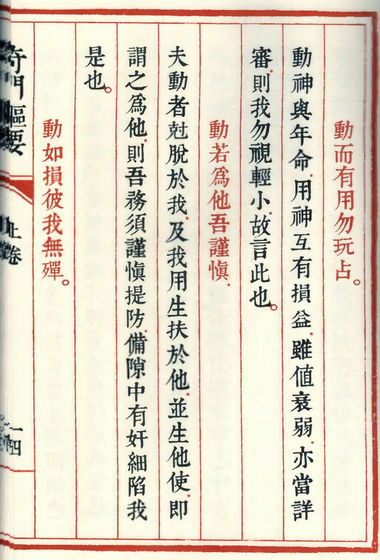 動而有用勿玩占。
動神與年命.用神互有損益.雖值衰弱.亦當詳
審.則我勿視輕小.故言此也。
動若爲他吾謹慎.
夫動者尅脫於我.及我用生扶於他.並生他使.即
謂之爲他.則吾務須謹慎提防.備隙中有奸細陷我
是也。
動如損彼我無殫。
奇門樞要
上卷
一四